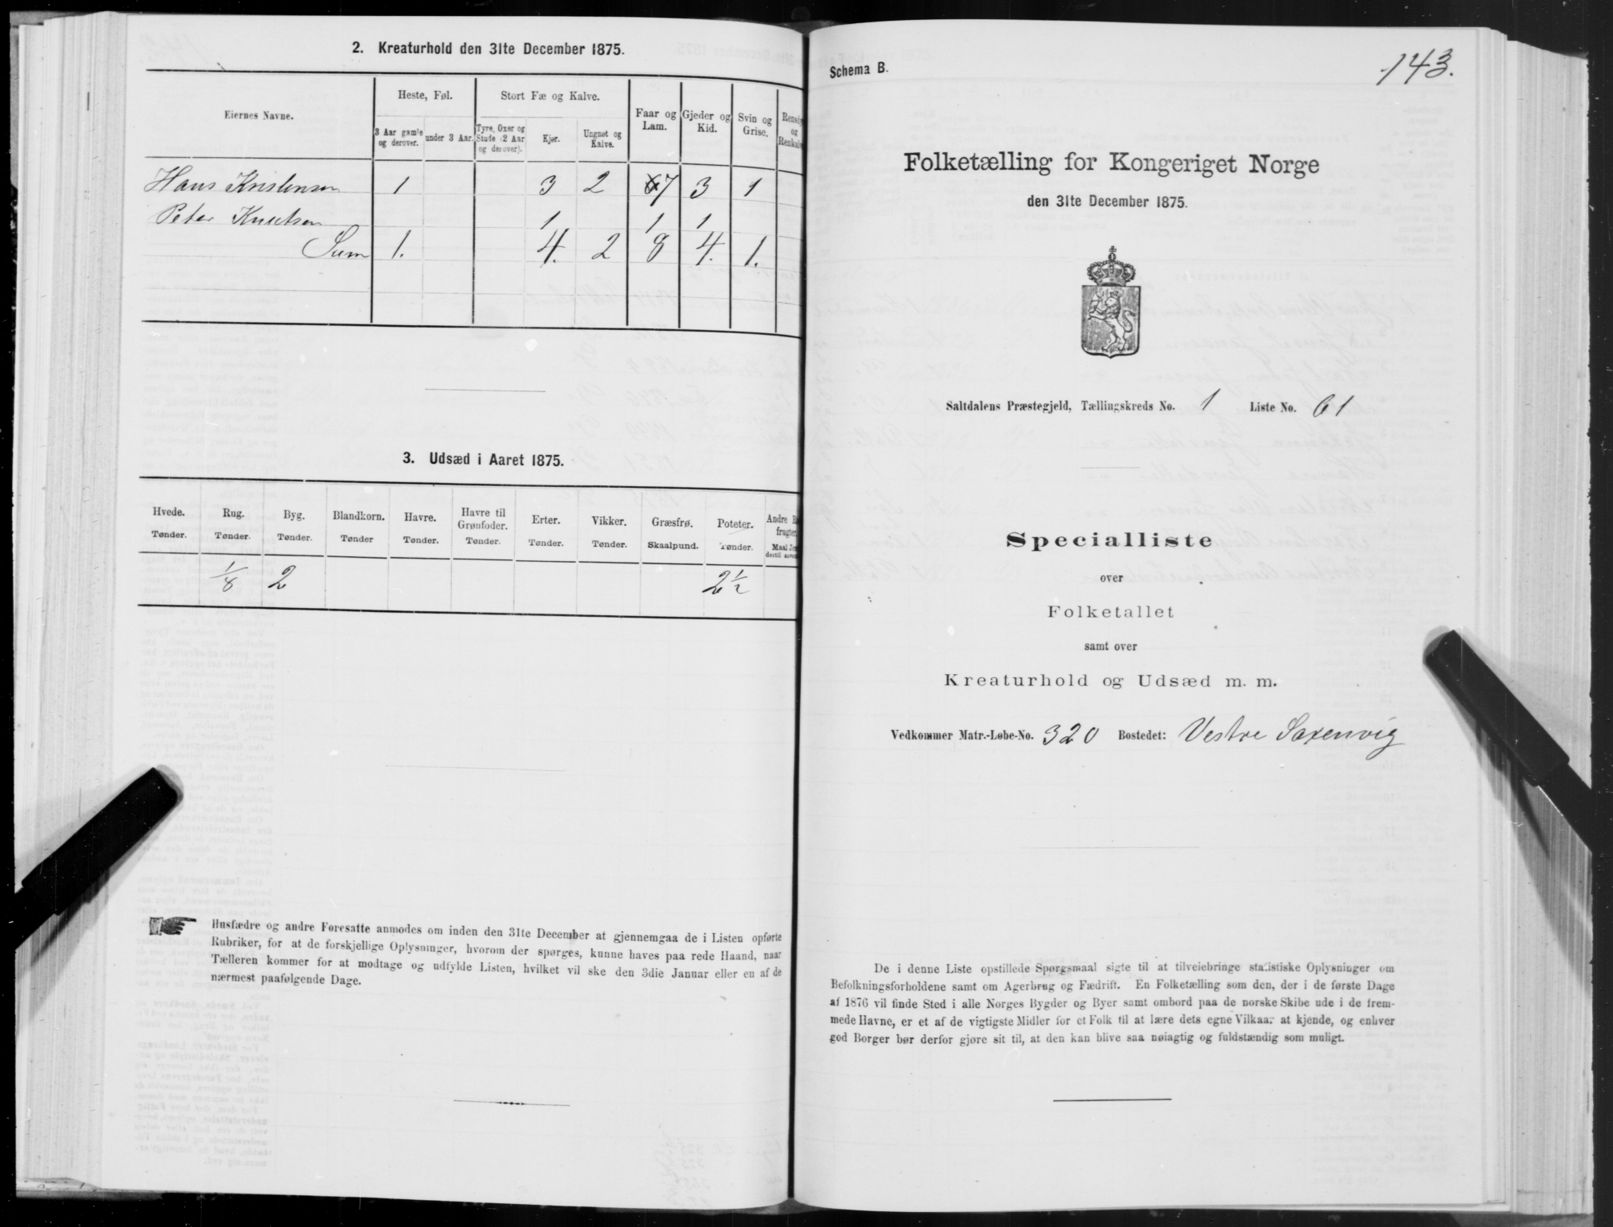 2. Kreaturhold den 31te December 1875.
Eiernes Navne.
Heste, Føl.
Stort Fæ og Kalve.
Faar og Lam.
Gjeder og Kid.
Svin og Grise.
3 Aar gamle og derover.
under 3 Aar.
Tyre, Oxer og Stude (2 Aar og derover).
Kjør.
Ungnøt og Kalve.
Hans Kristensen 1 3 2 7 3 1
Peter Knutsen 1 1 1
Sum 1. 4. 2 8 4. 1.
3. Udsæd i Aaret 1875.
Hvede. Rug. Byg. Blandkorn. Havre. Havre til Grønfoder. Erter. Vikker. Græsfrø. Poteter.
Tønder. Tønder. Tønder. Tønder Tønder. Tønder. Tønder. Tønder. Skaalpund. Tønder.
1/8 2 2 1/2
Husfædre og andre Foresatte anmodes om inden den 31te December at gjennemgaa de i Listen opførte
Rubriker, for at de forskjellige Oplysninger, hvorom der spørges, kunne haves paa rede Haand, naar
Tælleren kommer for at modtage og udfylde Listen, hvilket vil ske den 3die Januar eller en af de
nærmest paafølgende Dage.
Schema B.
143.
Folketælling for Kongeriget Norge
den 31te December 1875.
Saltdalens Præstegjeld, Tællingskreds No. 1 Liste No. 61
Specialliste
over
Folketallet
samt over
Kreaturhold og Udsæd m. m.
Vedkommer Matr.-Løbe-No. 320 Bostedet: Vestre Saxenvig
De i denne Liste opstillede Spørgsmaal sigte til at tilveiebringe statistiske Oplysninger om
Befolkningsforholdene samt om Agerbrug og Fædrift. En Folketælling som den, der i de første Dage
af 1876 vil finde Sted i alle Norges Bygder og Byer samt ombord paa de norske Skibe ude i de frem-
mede Havne, er et af de vigtigste Midler for et Folk til at lære dets egne Vilkaar at kjende, og enhver
god Borger bør derfor gjøre sit til, at den kan blive saa nøiagtig og fuldstændig som muligt.